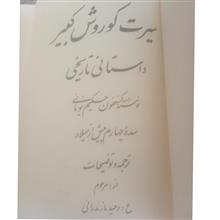 سیرت کوروش کبیر
داستانی تاریخی
نوشته گزنفون حکیم یونانی
سدهٔ چهارم پیش از میلاد
ترجمه و توضیحات
از: مرحوم
ع: وحید مازندرانی